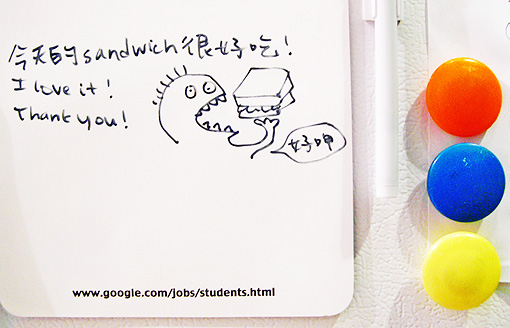 今天的sandwich很好吃!
I love it!
Thank you!
好呷
www.google.com/jobs/students.html